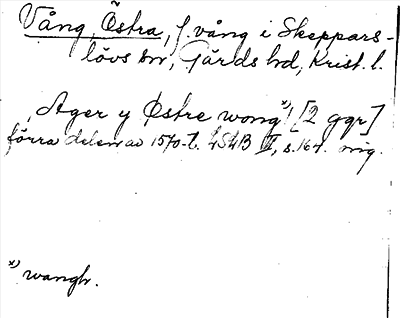 Vång, Östra, f. vång i Skeppars-
lövs sn, Gärds hd, Krist. l.
Ager y Østre wong x) ! [2 ggr]
förra delen av 1570-t. LSHB II, s. 164. orig.
x) wangh.